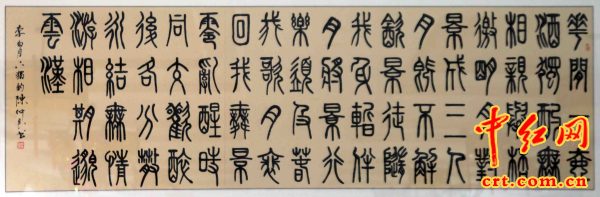 華間一壺
酒獨酌無
相親舉杯
邀明月對
景成三人
月既不解
飲景徒隨
我身暫伴
月將景行
樂須及春
我歌月裴
回我舞景
零亂醒時
同交歡醉
後各分散
永結無情
游相期邈
雲漢
李白月下獨酌 陳仲
中红网
crt.com.cn